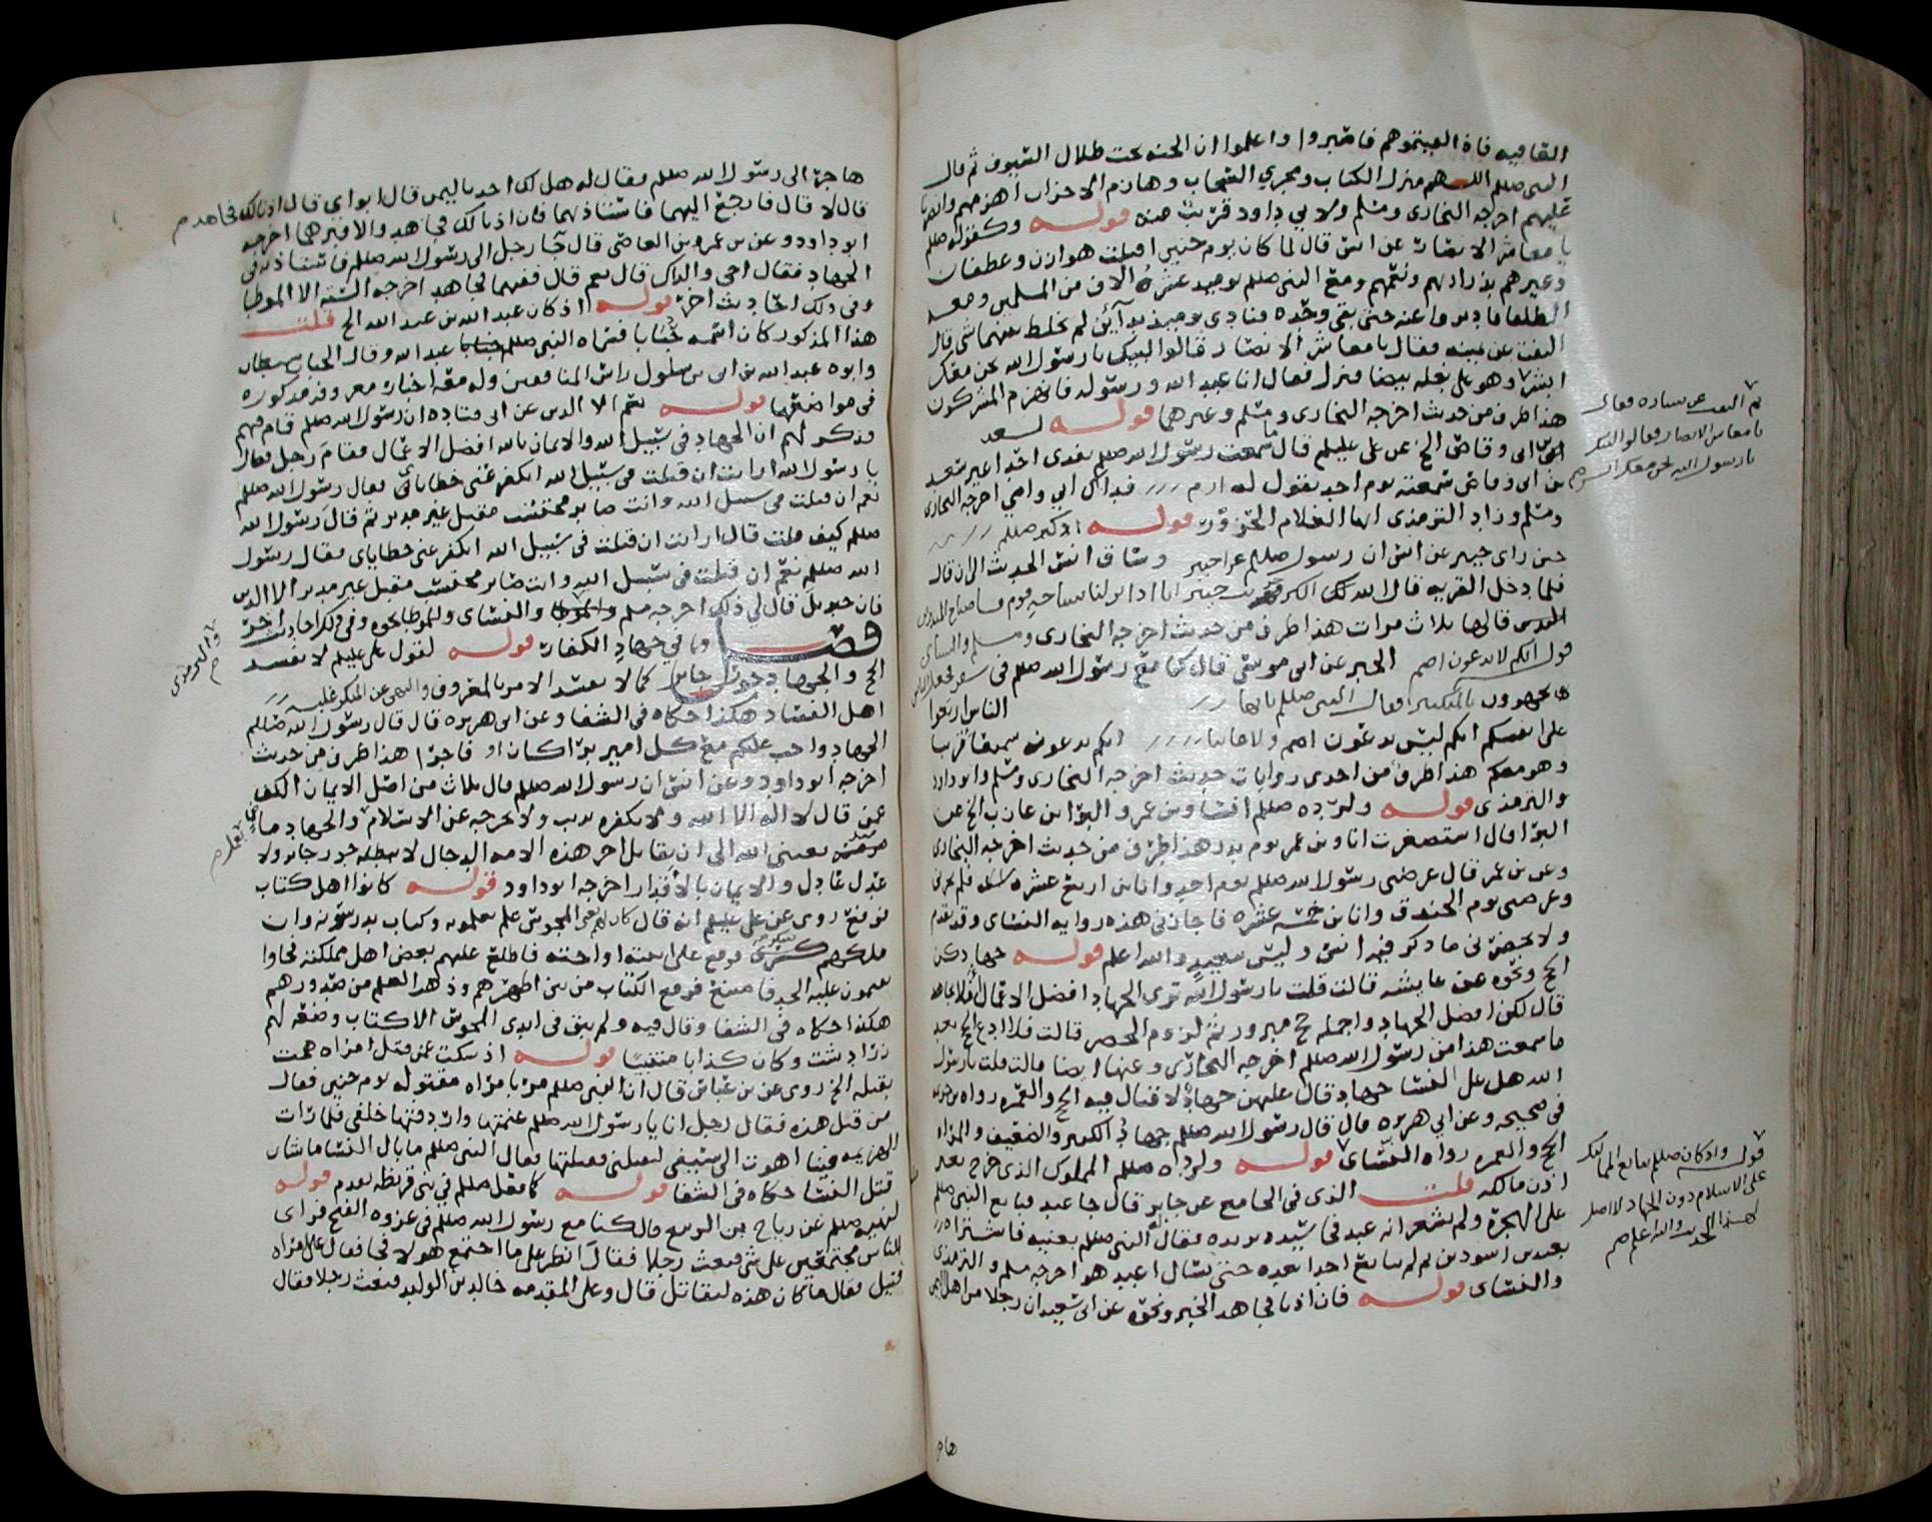 العافيه فاذا لقيتموهم فاصبروا واعلموا ان الجنه تحت ظلال السيوف ثم قال
النبي صللم اللهم منزل الكتاب ومجري السحاب وهازم الاحزاب اهزمهم وانصرنا
عليهم اخرجه البخاري ومسلم ولابي داود قريب منه قوله وكقوله صللم
يا معاشر الانصار عن انس قال لما كان يوم حنين اقبلت هوازن وغطفان
وغيرهم بذراريهم ونعمهم ومع النبي صللم يوميذ عشرة الاف من المسلمين ومعه
الطلقا فادبروا عنه حتى بقي وحده فنادى يوميذ نداين لم يخلط بينهما شي قال
التفت عن يمينه فقال يا معاشر الانصار قالوا لبيك يا رسول الله نحن معك
ابشر وهو على بغله بيضا فنزل فقال انا عبد الله ورسوله فانهزم المشركون
هذا طرف من حديث اخرجه البخاري ومسلم وغيرهما قوله لسعد
بن ابي وقاص الخ عن علي عليلم قال ما سمعت رسول الله صللم يفدي احدا غير سعد
بن ابي وقاص سمعته يوم احد يقول له ارم فداك ابي وامي اخرجه البخاري
ومسلم وزاد الترمذي ايها الغلام الحزور قوله اذ كبر صللم
حين راى خيبر عن انس ان رسول صللم غزا خيبر وساق انس الحديث الى ان قال
فلما دخل القريه قال الله اكبر خربت خيبر انا اذا نزلنا بساحه قوم فساء صباح المنذرين
قالها ثلاث مرات هذا طرف من حديث اخرجه البخاري ومسلم والنسائي
قوله انكم لا تدعون اصم الخبر عن ابي موسى قال كنا مع رسول الله صللم في سفر فجعل الناس
يجهرون بالتكبير فقال النبي صللم يا ايها الناس اربعوا
على انفسكم انكم ليس تدعون اصم ولا غايبا انكم تدعونه سميعا قريبا
وهو معكم هذا طرف من احدى روايات حديث اخرجه البخاري ومسلم وابو داود
والترمذي قوله ولرده صللم انسا وبن عمر والبرا بن عازب الخ عن
البرا قال استصغرت انا وبن عمر يوم بدر هذا طرف من حديث اخرجه البخاري
وعن بن عمر قال عرضني رسول الله صللم يوم احد وانا بن اربع عشره سنه فلم يجزني
وعرضني يوم الخندق وانا بن خمس عشره فاجازني هذه روايه النسائي وقد تقدم
ولا يحضرني ما ذكر فيه انس وليس ببعيد والله اعلم قوله جهادكن
الحج ونحوه عن عايشه قالت قلت يا رسول الله نرى الجهاد افضل الاعمال افلا نجاهد
قال لكن افضل الجهاد واجمله حج مبرور ثم لزوم الحصر قالت فلا ادع الحج بعد
ما سمعت هذا من رسول الله صللم اخرجه البخاري وعنها ايضا قالت قلت يا رسول
الله هل على النسا جهاد قال عليهن جهاد لا قتال فيه الحج والعمره رواه بن خزيمه
في صحيحه وعن ابي هريره قال قال رسول الله صللم جهاد الكبير والضعيف والمراه
الحج والعمره رواه النسائي قوله ولرده صللم المملوك الذي خرج بغير
اذن مالكه قلت الذي في الجامع عن جابر قال جا عبد فبايع النبي صللم
على الهجرة ولم يشعر انه عبد فجا سيده يريده فقال له النبي صللم بعنيه فاشتراه
بعبدين اسودين ثم لم يبايع احدا بعده حتى يسال اعبد هو اخرجه مسلم والترمذي
والنسائي قوله فان اذنا فجاهد الخبر ونحوه عن ابي سعيد ان رجلا من اهل اليمن
ثم التفت عن يساره فقال
يا معاشر الانصار فقالوا لبيك
يا رسول الله نحن معك ابشر
قوله واذ كان صللم يبايع المماليك
على الاسلام دون الجهاد لا اصل
لهذا الحديث والله اعلم صح
هاجر
هاجر الى رسول الله صللم فقال له هل لك احد باليمن قال ابواي قال اذنا لك
قال لا قال فارجع اليهما فاستاذنهما فان اذنا لك فجاهد والا فبرهما اخرجه
ابو داود وعن بن عمرو بن العاصي قال جا رجل الى رسول الله صللم فاستاذنه في
الجهاد فقال احي والداك قال نعم قال ففيهما فجاهد اخرجه السته الا الموطا
وفي ذلك احاديث اخر قوله اذ كان عبد الله بن عبد الله الخ قلت
هذا المذكور كان اسمه حبابا فسماه النبي صللم عبد الله وقال الحباب شيطان
وابوه عبد الله بن ابي بن سلول راس المنافقين وله معه اخبار معروفه مذكوره
في مواضعها قوله نعم الا الدين عن ابي قتاده ان رسول الله صللم قام فيهم
فذكر لهم ان الجهاد في سبيل الله والايمان بالله افضل الاعمال فقام رجل فقال
يا رسول الله ارايت ان قتلت في سبيل الله اتكفر عني خطاياي فقال رسول الله صللم
نعم ان قتلت في سبيل الله وانت صابر محتسب مقبل غير مدبر ثم قال رسول الله
صللم كيف قلت قال ارايت ان قتلت في سبيل الله اتكفر عني خطاياي فقال رسول
الله صللم نعم ان قتلت في سبيل الله وانت صابر محتسب مقبل غير مدبر الا الدين
فان جبريل قال لي ذلك اخرجه مسلم والموطا والنسائي وللموطا نحوه وفي ذلك احاديث اخر
فصل وما في جهاد الكفار قوله لقول علي عليلم لا يفسد
الحج والجهاد جور جاير كما لا يفسد الامر بالمعروف والنهي عن المنكر غلبه
اهل الفساد هكذا حكاه في الشفا وعن ابي هريره قال قال رسول الله صللم
الجهاد واجب عليكم مع كل امير برا كان او فاجرا هذا طرف من حديث
اخرجه ابو داود وعن انس ان رسول الله صللم قال ثلاث من اصل الايمان الكف
عمن قال لا اله الا الله ولا نكفره بذنب ولا نخرجه عن الاسلام والجهاد ماض
منذ بعثني الله الى ان يقاتل اخر هذه الامه الدجال لا يبطله جور جاير ولا
عدل عادل والايمان بالاقدار اخرجه ابو داود قوله كانوا اهل كتاب
فرفع روي عن علي عليلم انه قال كان للمجوس علم يعلمونه وكتاب يدرسونه وان
ملكهم سكر فوقع على ابنته او اخته فاطلع عليهم بعض اهل مملكته فجاوا
يقيمون عليه الحد فامتنع فرفع الكتاب من بين اظهرهم وذهب العلم من صدورهم
هكذا حكاه في الشفا وقال فيه ولم يبق في ايدي المجوس الا كتاب وضعه لهم
زرادشت وكان كذابا متنبيا قوله اذ سكت عمن قتل امراه همت
بقتله الخ روي عن بن عباس قال ان النبي صللم مر بامراه مقتوله يوم حنين فقال
من قتل هذه فقال رجل انا يا رسول الله صللم غنمتها واردفتها خلفي فلما رات
الهزيمه فينا اهوت الى سيفي لتقتلني فقتلتها فقال النبي صللم ما بال النسا ما شان
قتل النسا حكاه في الشفا قوله كما فعل صللم في بني قريظه تقدم قوله
لنهيه صللم عن رباح بن الربيع قال كنا مع رسول الله صللم في غزوه الفتح فراى
الناس مجتمعين على شي فبعث رجلا فقال انظر على ما اجتمع هولا فجا فقال على امراه
قتيل فقال ما كان هذه لتقاتل قال وعلى المقدمه خالد بن الوليد فبعث رجلا فقال
فجاهد م
والترمذي